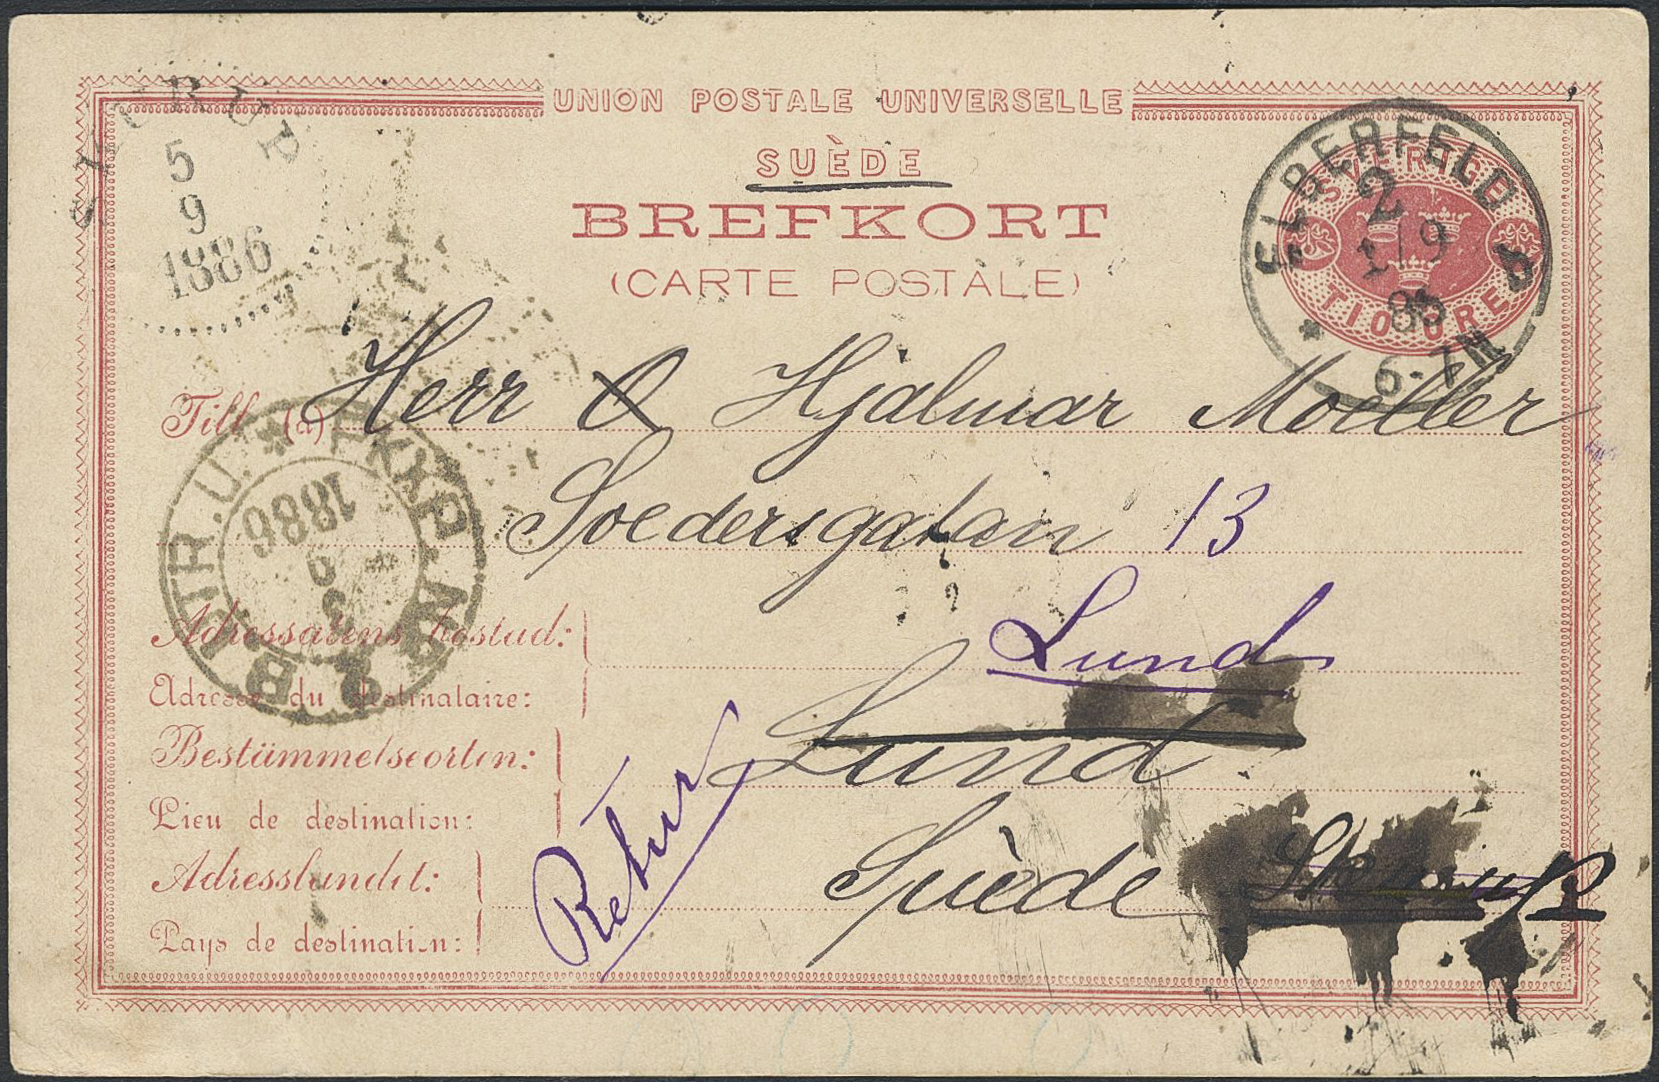 UNION POSTALE UNIVERSELLE
SUÈDE
BREFKORT
(CARTE POSTALE)
SVERIGE
TIO ÖRE
ELBERFELD
2
1/9
86
6-7N
5
9
1886
Till (à) Herr O Hjalmar Moeller
Soedersgatan 13
PKXP. Nr 2 B. UTR. U.
3
9
1886
Adressatens bostad:
Adresse du destinataire:
Lund
Bestämmelseorten:
Lund
Lieu de destination:
Adresslandet:
Suède
Pays de destination:
Retur